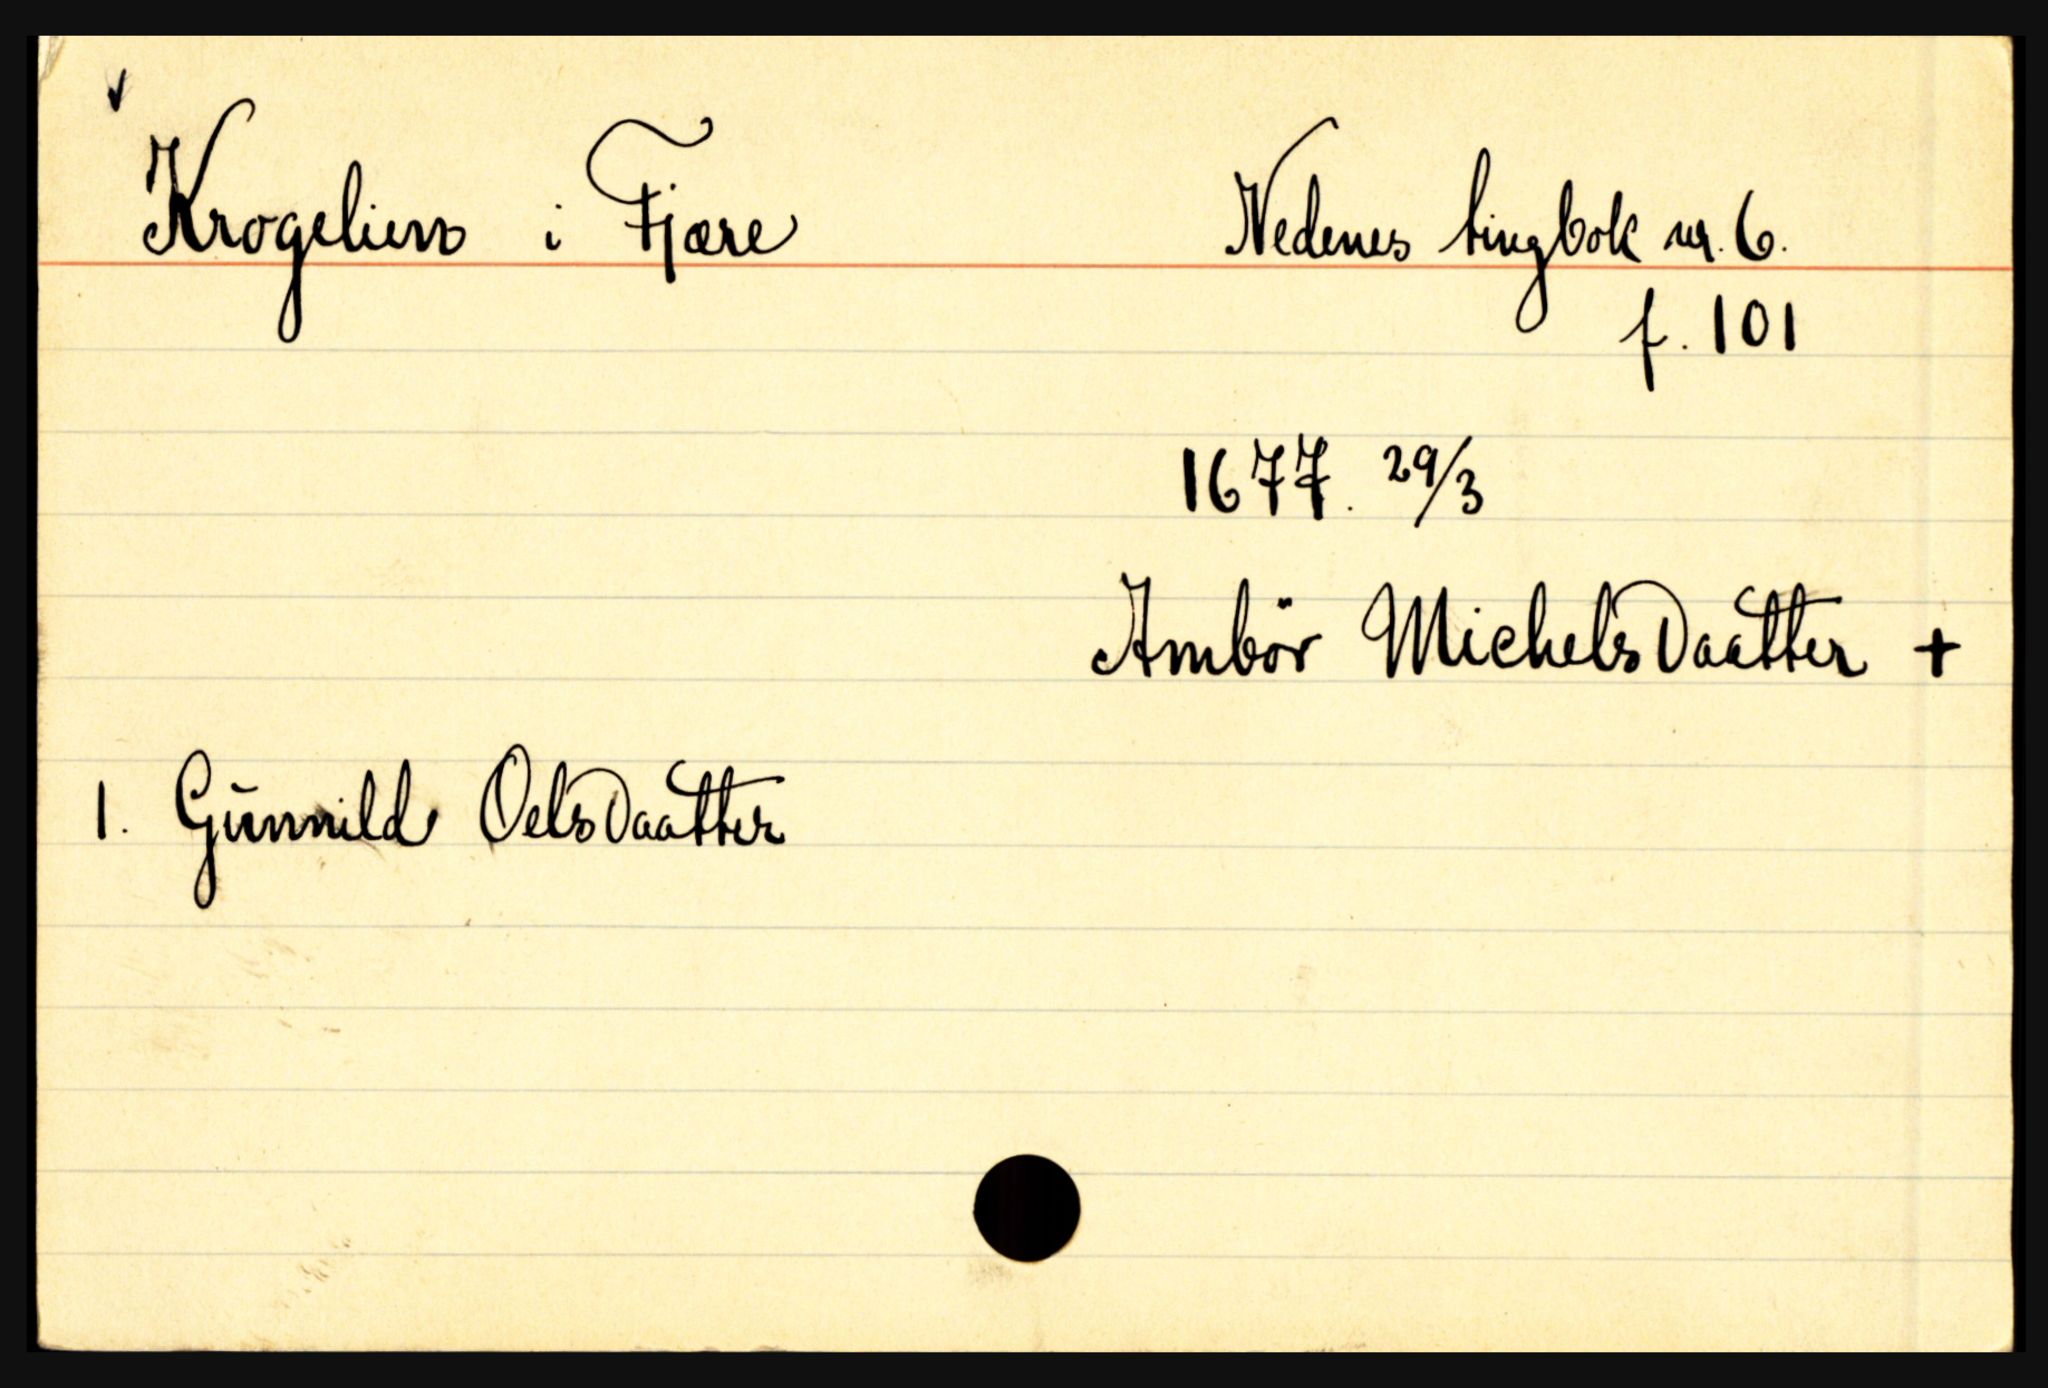 Krogelien i Fjære Nedenes tingbok nr. 6.
f. 101
1677. 29/3
Ambör MichelsDaatter +
1. Gūnnild OelsDaatter